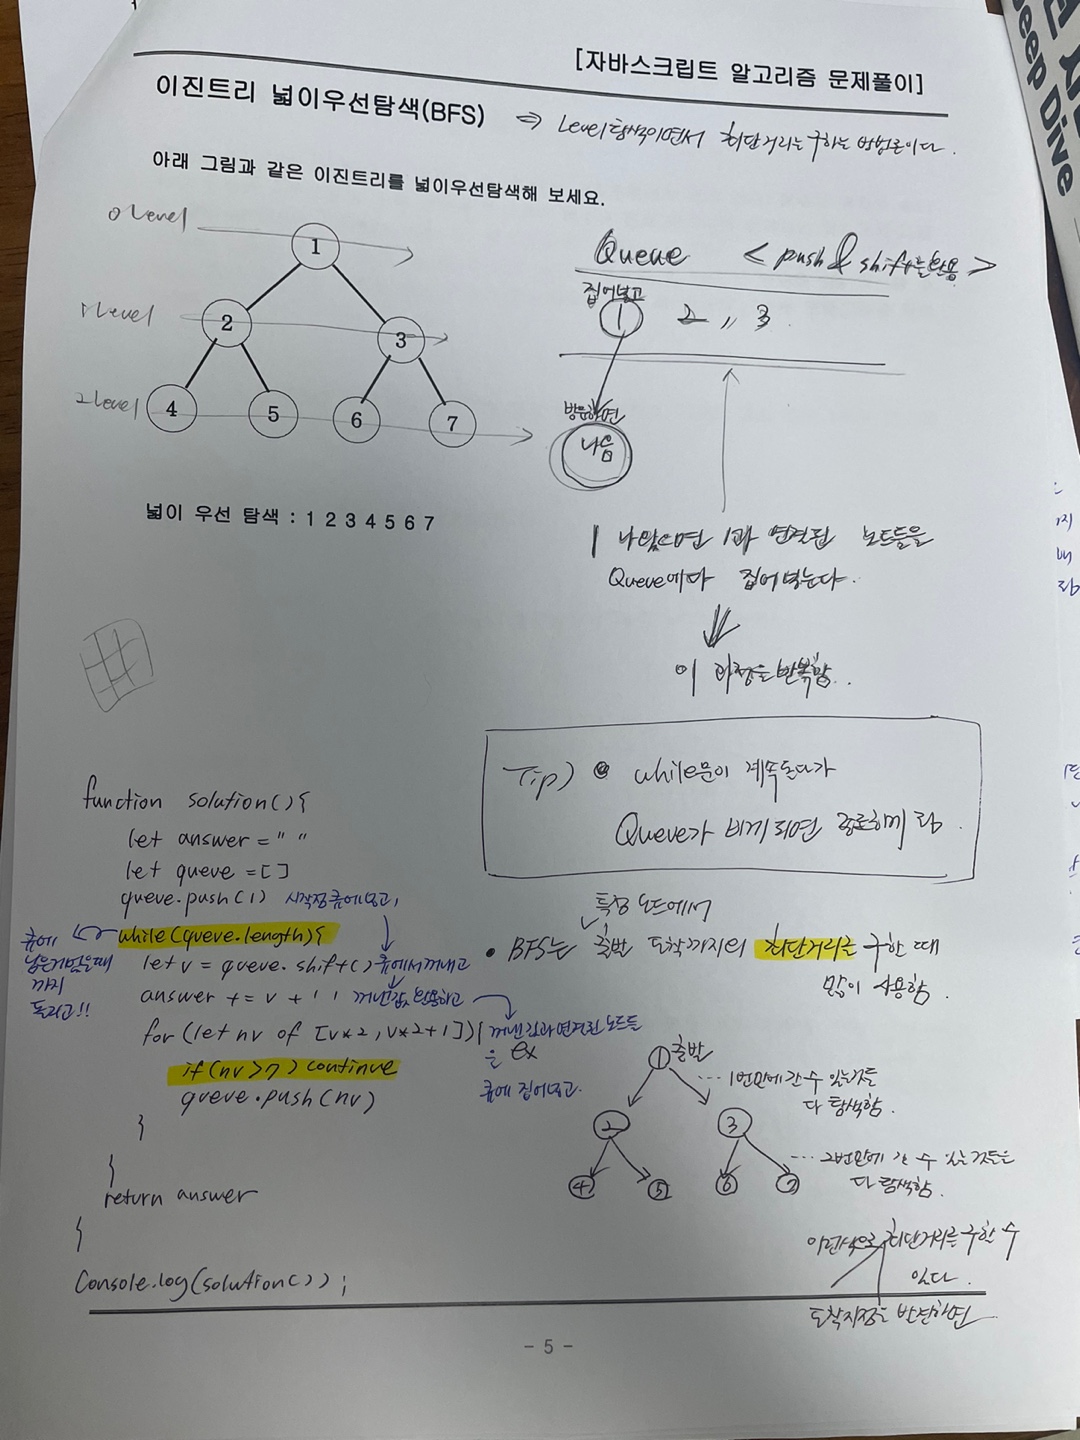 [자바스크립트 알고리즘 문제풀이]
이진트리 넓이우선탐색(BFS)
⇒ Level탐색이면서 최단거리는 구하는 방법론이다.
아래 그림과 같은 이진트리를 넓이우선탐색해 보세요.
0 Level
1
1 Level
2
3
2 Level
4
5
6
7
넓이 우선 탐색 : 1 2 3 4 5 6 7
Queue < push & shift를 활용 >
집어넣고
1 2 , 3
방문하면
나옴
1 나왔으면 1과 연결된 노드들을
Queue에다 집어넣는다.
이 과정을 반복함..
Tip) while문이 계속돌다가
Queue가 비게 되면 종료하게 됨.
function solution(){
let answer = " "
let queue = []
queue.push(1) 시작점 큐에넣고,
while(queue.length){
큐에
남은게없을때
까지
돌리고!!
let v = queue.shift() 큐에서꺼내고
answer += v + ' ' 꺼낸값 활용하고
for (let nv of [v*2, v*2+1]){ 꺼낸값과연결된노드들
을 ex
if(nv>7) continue
queue.push(nv) 큐에 집어넣고.
}
}
return answer
}
Console.log(solution());
특정 노드에서
• BFS는 출발 도착까지의 최단거리를 구할 때
많이 사용함.
1 출발
... 1번만에 갈 수 있는것들
다 탐색함.
2
3
... 2번만에 갈 수 있는것들을
다 탐색함.
4
5
6
7
이런식으로 최단거리를 구할 수
있다.
도착지점을 발견하면
- 5 -
Deep Dive